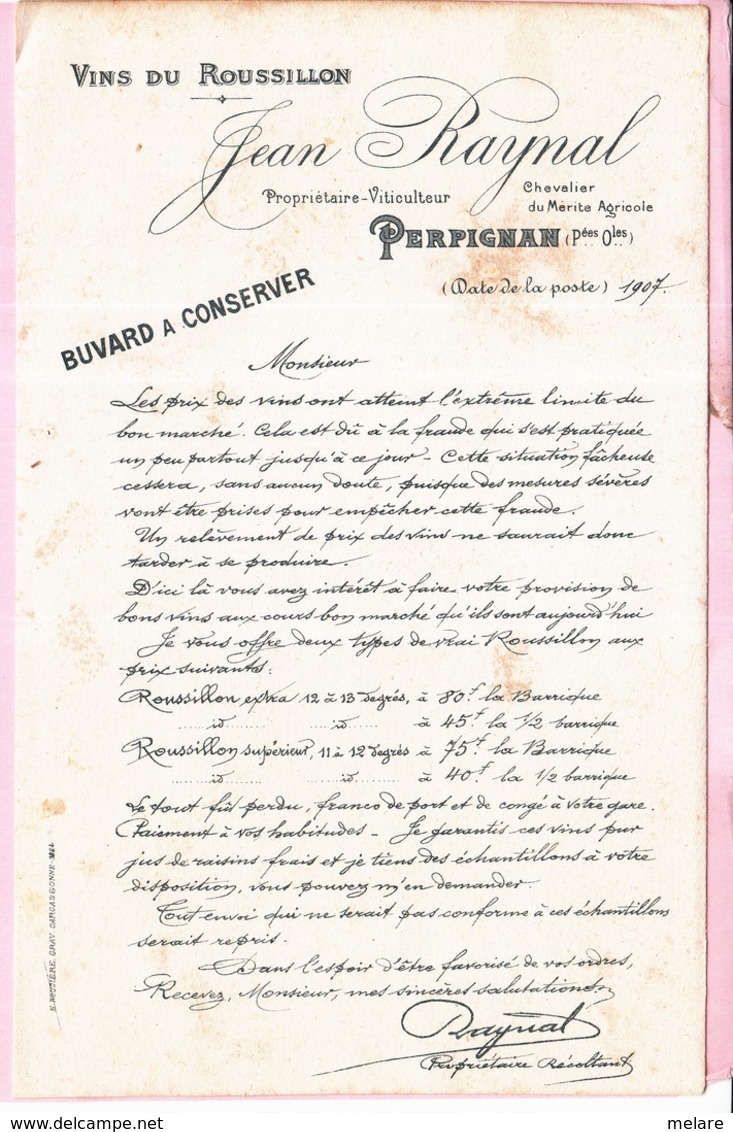 VINS DU ROUSSILLON
Jean Raynal
Propriétaire-Viticulteur
Chevalier
du Mérite Agricole
PERPIGNAN (Pées Oles)
(Date de la poste) 1907.
BUVARD A CONSERVER
Monsieur
Les prix des vins ont atteint l'extrême limite du
bon marché. Cela est dû à la fraude qui s'est pratiquée
un peu partout jusqu'à ce jour - Cette situation fâcheuse
cessera, sans aucun doute, puisque des mesures sévères
vont être prises pour empêcher cette fraude.
Un relèvement de prix des vins ne saurait donc
tarder à se produire.
D'ici là vous avez intérêt à faire votre provision de
bons vins aux cours bon marché qu'ils sont aujourd'hui
Je vous offre deux types de vrai Roussillon aux
prix suivants:
Roussillon extra 12 à 13 degrés, à 80f. la Barrique
id id à 45f. la 1/2 barrique
Roussillon supérieur, 11 à 12 degrés à 75f. la Barrique
id id à 40f. la 1/2 barrique
Le tout fût perdu, franco de port et de congé à votre gare.
Paiement à vos habitudes - Je garantis ces vins pur
jus de raisins frais et je tiens des échantillons à votre
disposition, vous pouvez m'en demander.
Tout envoi qui ne serait pas conforme à ces échantillons
serait repris.
Dans l'espoir d'être favorisé de vos ordres,
Recevez, Monsieur, mes sincères salutations.
Raynal
Propriétaire Récoltant
GRAV. CARCASSONNE
melare